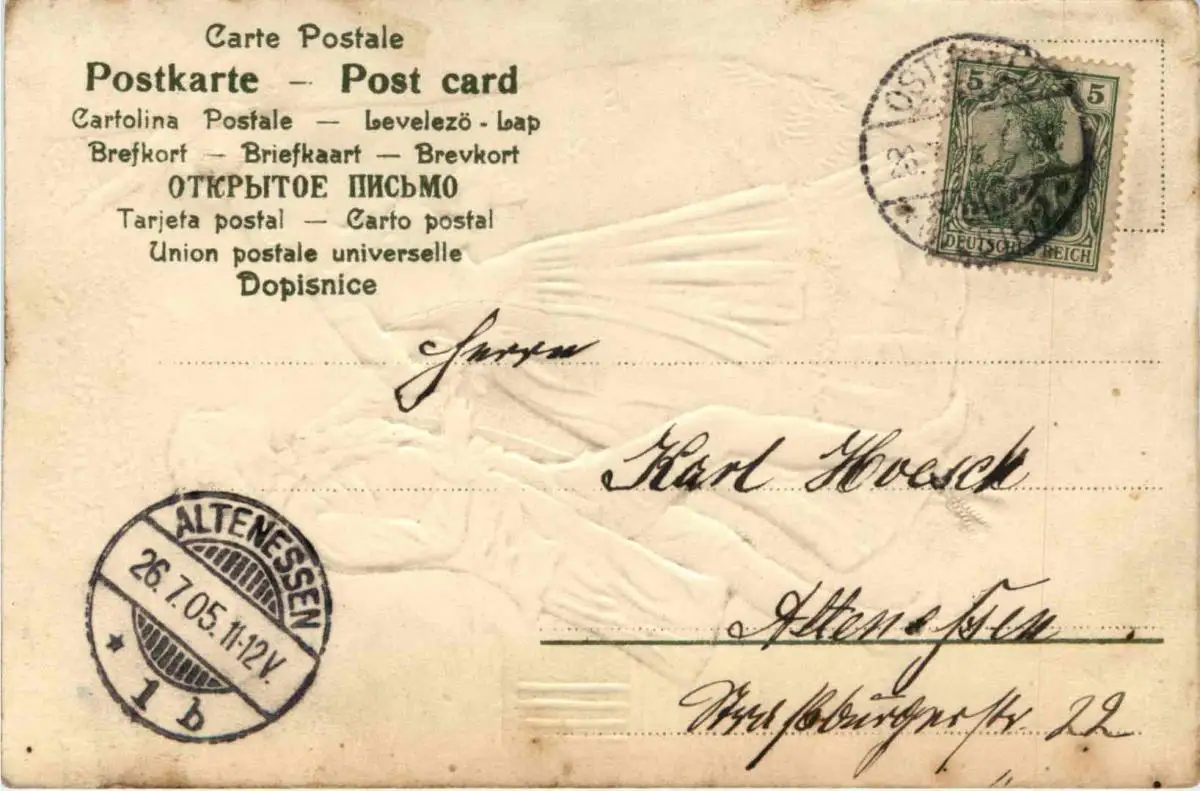 Carte Postale
Postkarte – Post card
Cartolina Postale – Levelező - Lap
Brefkort – Briefkaart – Brevkort
ОТКРЫТОЕ ПИСЬМО
Tarjeta postal – Carto postal
Union postale universelle
Dopisnice
5 5
DEUTSCHES REICH
OST
26.
Herrn
Karl Hoesch
Altenessen.
Straßburgerstr. 22
ALTENESSEN
26.7.05.11-12V.
* 1 b